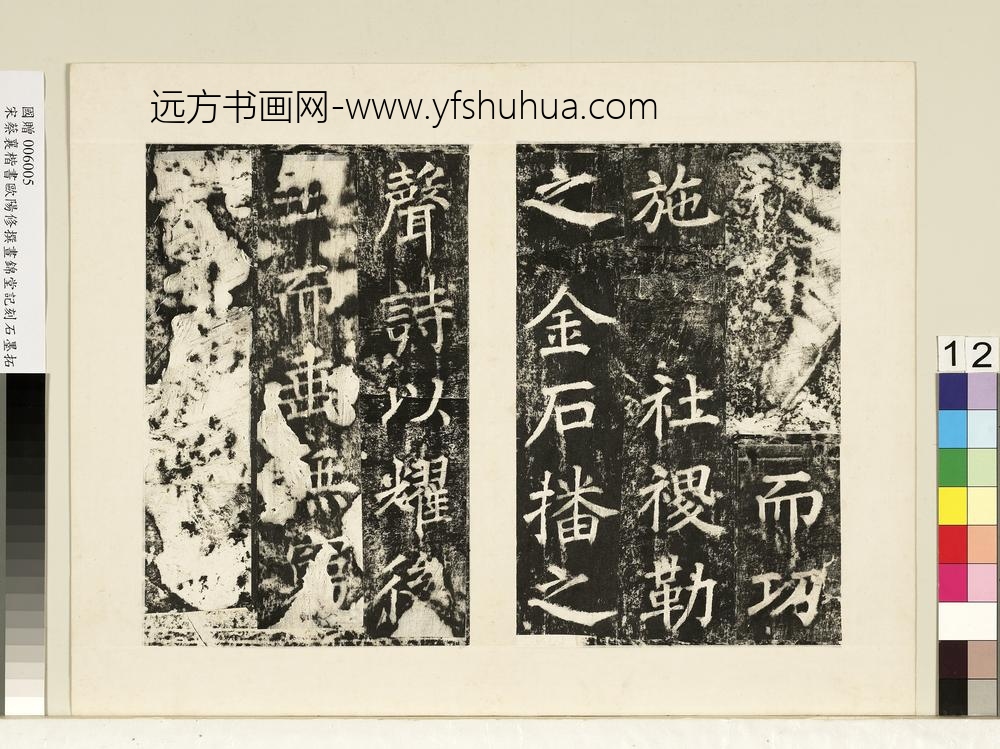 远方书画网-www.yfshuhua.com
國贈006005
宋蔡襄楷書歐陽修撰晝錦堂記刻石墨拓
12
而功
施社稷勒
之金石播之
聲詩以耀後
世而垂無窮